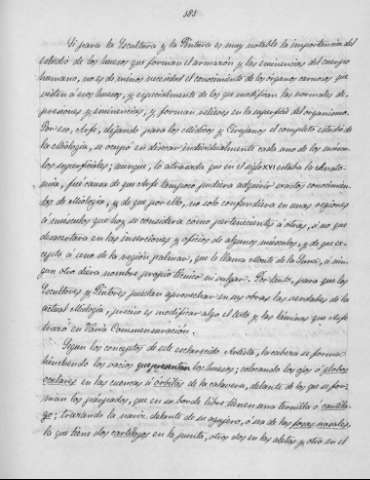 181
Si para la Escultura y la Pintura es muy notable la importancia del
estudio de los huesos que forman el armazón y las eminencias del cuerpo
humano, no es de menos necesidad el conocimiento de los órganos carnosos que
visten á esos huesos, y especialmente de los que modifican las normales de-
presiones y eminencias, y forman relieves en la superficie del organismo.
Por eso, Arfe, dejando para los Médicos y Cirujanos el completo estudio de
la Miología, se ocupó en diseñar individualmente cada uno de los múscu-
los superficiales; aunque, lo atrasada que en el siglo XVI estaba la Anato-
mía, fué causa de que Arfe tampoco pudiera adquirir exactos conocimien-
tos de Miología, y de que por ello, no solo confundiera en unas regiones
á músculos que hoy se considera como pertenecientes á otras, ó no que
desacertara en las inserciones y oficios de algunos músculos, y de que ex-
cepto á uno de la región palmar, que le llama Monte de la Luna, á nin-
gun otro diera nombre propio técnico ni vulgar. Por tanto, para que los
Escultores y Pintores puedan aprovechar en sus obras las verdades de la
actual Miología, preciso es modificar algo el texto y las láminas que Arfe
en Varia Commensuración.
Segun los conceptos de este esclarecido Artista, la cabeza se forma
hinchendo los vacíos que los huesos; colocando los ojos ó globos
oculares en las cuencas ú órbitas de la calavera, delante de los que se for-
man los párpados, que en su borde libre tienen una ternilla ó cartíla-
go; la nariz, delante de su agujero, ó sea de las fosas nasales,
la que tiene dos cartílagos en la punta, otros dos en las aletas y otro en el